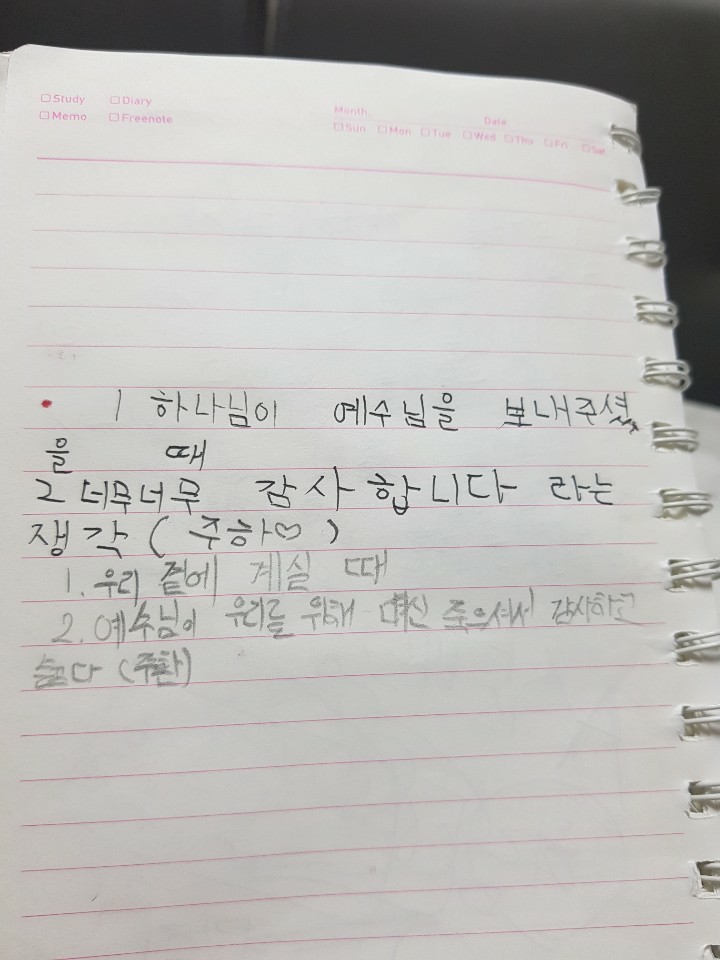 Study Diary
Memo Freenote
Month Date
Sun Mon Tue Wed Thu Fri Sat
1 하나님이 예수님을 보내주셨
을 때
2 너무너무 감사합니다 라는
쟁각 (주하♡)
1. 우리 곁에 계실 때
2. 예수님이 우리를 위해 대신 죽으셔서 감사하고
싶다 (주환)